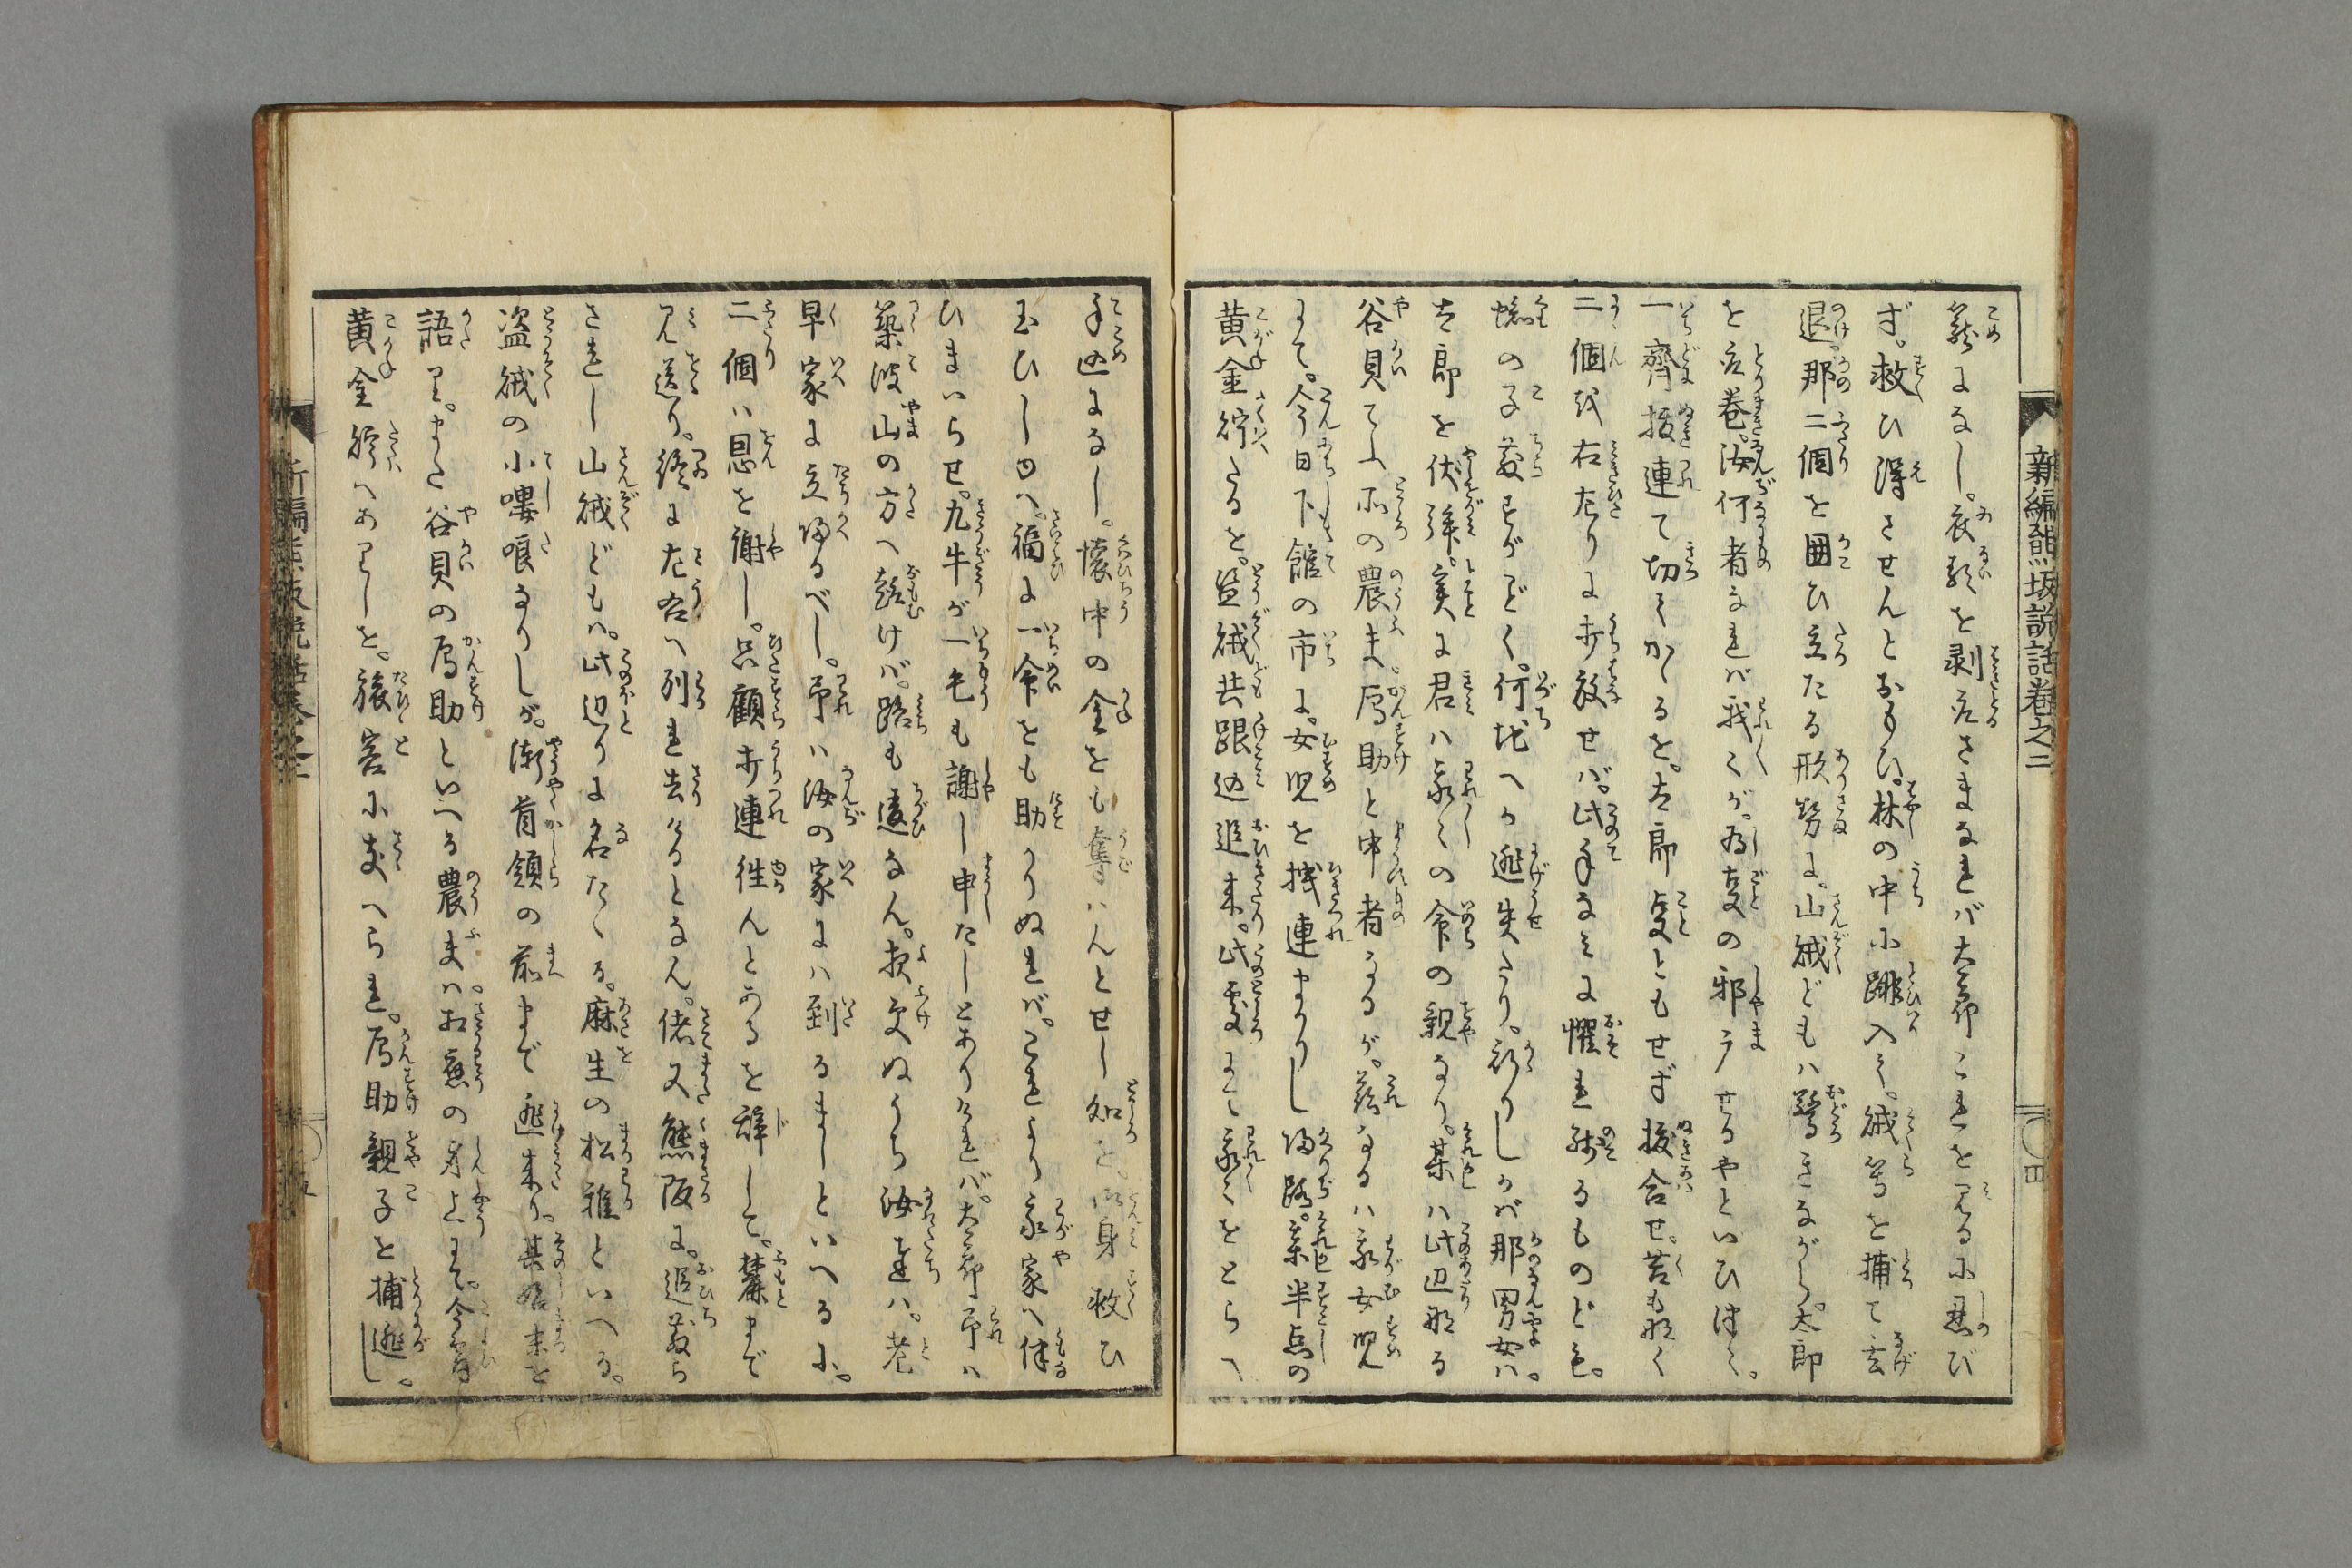 新編熊坂説話巻之二
〇四
籠になし。衣類を剥取さまなれバ太郎これを見るに忍び
ず。救ひ得させんとおもひ。林の中に跳入て。賊等を捕て玄
退。那二個を囲ひ立たる形勢に。山賊どもハ驚きながら。太郎
を取巻。汝何者なれバ我〻が。為事の邪广せるやといひはて。
一齊抜連て切てかゝるを。太郎叓ともせず抜合せ。苦も那く
二個を右左りに打放せバ。此手なみに懼れ残るものども。
蜘の子散せるごとく。何地へか逃失たり。祈りしかバ那男女ハ。
太郎を伏拝。実に君ハ我〻の命の親なり。某ハ此辺那る
谷貝てふ所の農夫。勘助と申者なるが。茲なるハ我女児
にて。今日下館の市に。女児を携連まかりし帰路。些半点の
黄金貯たるを。盗賊共跟这追来。此処にて我〻をとらへ
手込になし。懐中の金をも奪ハんとせし処を。御身救ひ
玉ひし由へ。福に一命をも助かりぬれバ。これより我家へ伴
ひまいらせ。九牛が一毛も謝し申たしとありけれバ。太郎予ハ
築波山の方へ赴けバ。路も違なん。夜更ぬうち汝達ハ。老
早家に立帰るべし。予ハ汝の家にハ到るましといへるに。
二個ハ恩を謝し。只顧打連往んとあるを辞して。麓まで
見送り。終に左右へ別れ去けるとなん。偖又熊阪に。追散ら
されし山賊どもハ。此辺りに名たゝる。麻生の松雅といへる。
盗賊の小嘍啰なりしが。漸首領の前まで逃来り。其始末を
語て。また谷貝の勘助といへる農夫ハ。相應の身上にて。今宵
黄金貯へありしを。旅客に支へられ。勘助親子を捕逃し。
新編熊坂説話巻之二